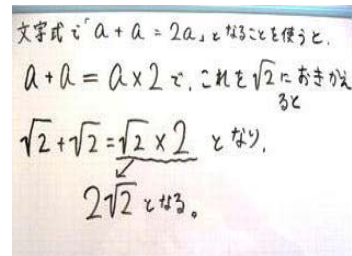 文字式で「a + a = 2a」となることを使うと、
a + a = a × 2 で、これを√2 におきかえ
ると
√2 + √2 = √2 × 2 となり、
2√2 となる。